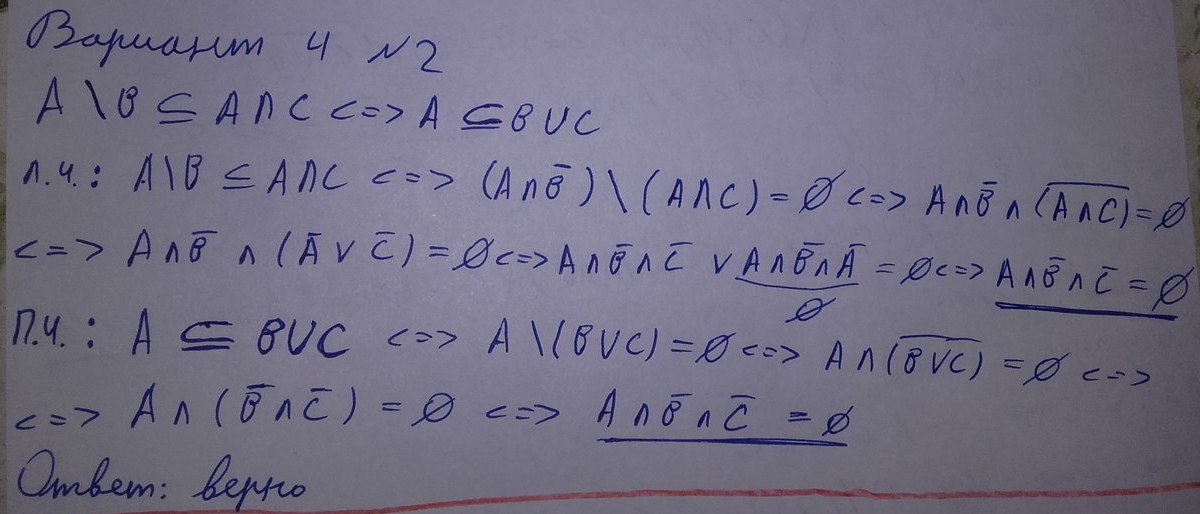 Вариант 4 №2
A \ B ⊆ A ∩ C <=> A ⊆ B ∪ C
л.ч.: A \ B ⊆ A ∩ C <=> (A ∩ B̅) \ (A ∩ C) = ∅ <=> A ∩ B̅ ∩ (A̅ ̅∩̅ ̅C̅) = ∅
<=> A ∩ B̅ ∩ (A̅ ∪ C̅) = ∅ <=> A ∩ B̅ ∩ C̅ ∪ A ∩ B̅ ∩ A̅ = ∅ <=> A ∩ B̅ ∩ C̅ = ∅
∅
П.ч.: A ⊆ B ∪ C <=> A \ (B ∪ C) = ∅ <=> A ∩ (B̅ ̅∪̅ ̅C̅) = ∅ <=>
<=> A ∩ (B̅ ∩ C̅) = ∅ <=> A ∩ B̅ ∩ C̅ = ∅
Ответ: верно